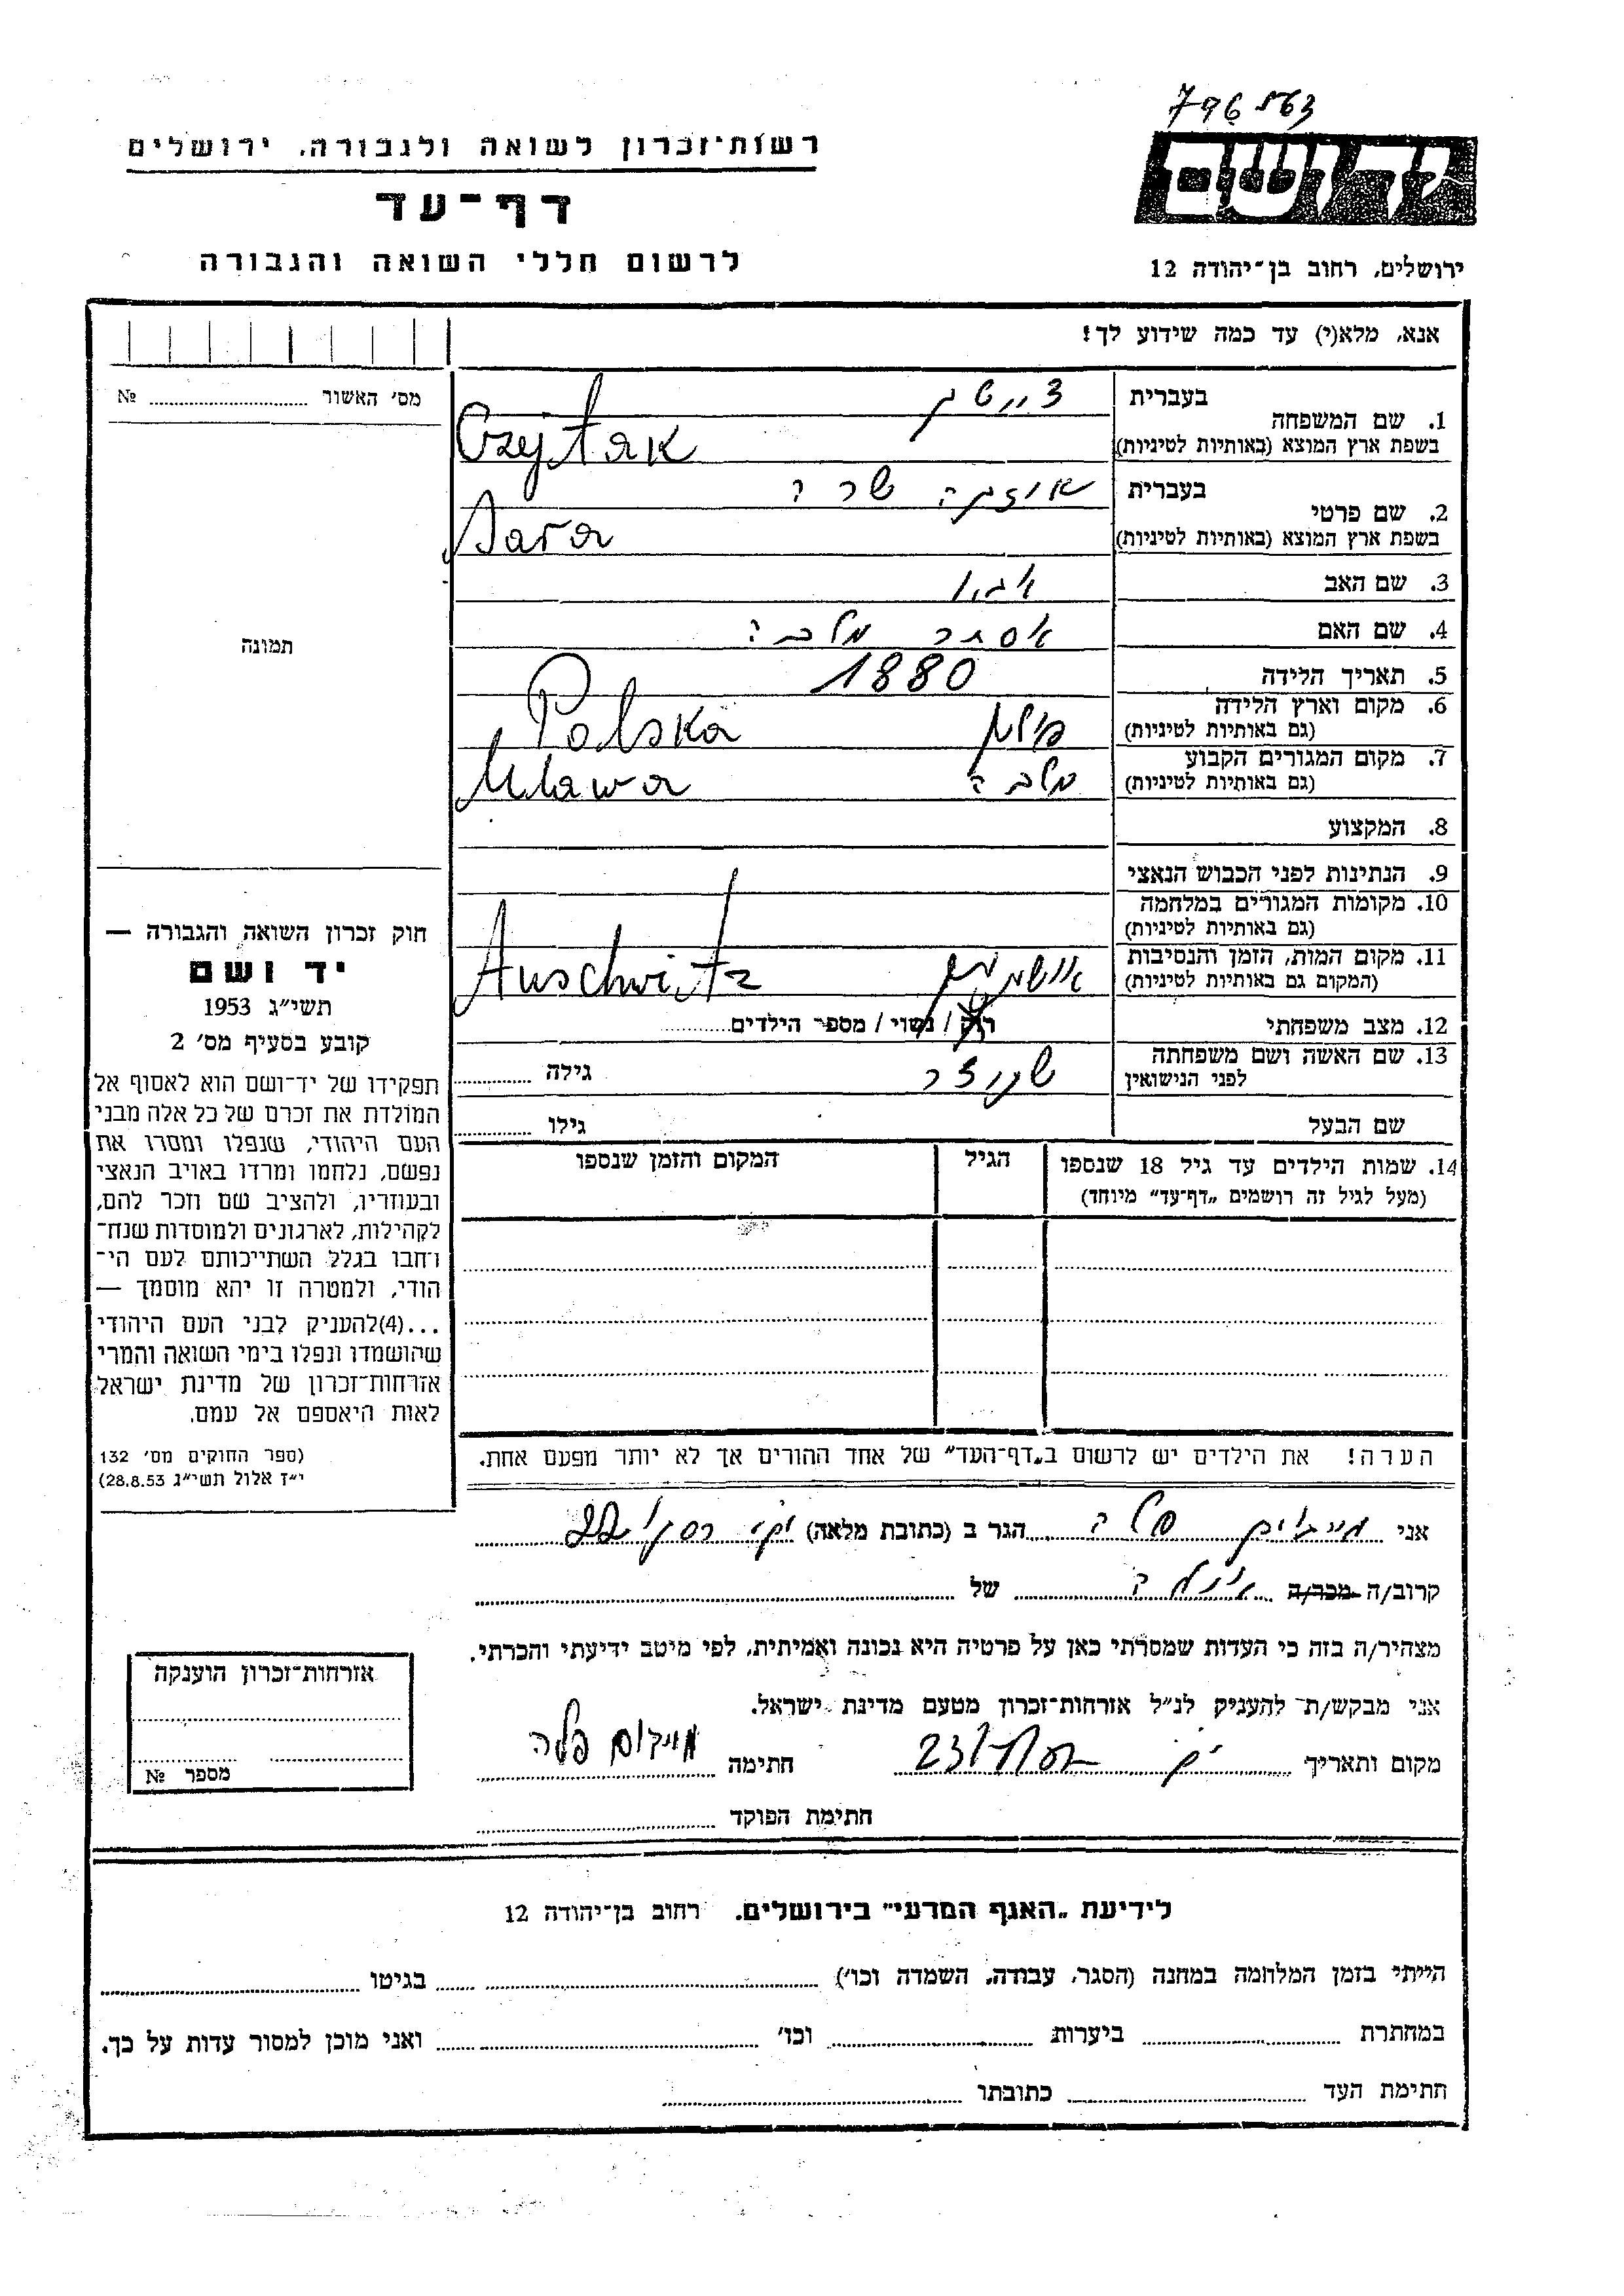 רשות־זכרון לשואה ולגבורה, ירושלים
דף־עד
לרשום חללי השואה והגבורה
יד ושם
ירושלים, רחוב בן־יהודה 12
אנא, מלא(י) עד כמה שידוע לך!
מס׳ האשור № 
תמונה
1. שם המשפחה
בעברית
בשפת ארץ המוצא (באותיות לטיניות) Czejtak
2. שם פרטי
בעברית שרה
בשפת ארץ המוצא (באותיות לטיניות) Sara
3. שם האב
4. שם האם אסתר מלכה
5. תאריך הלידה 1880
6. מקום וארץ הלידה (גם באותיות לטיניות) פולין Polska
7. מקום המגורים הקבוע (גם באותיות לטיניות) Mlawa
8. המקצוע
9. הנתינות לפני הכבוש הנאצי
10. מקומות המגורים במלחמה (גם באותיות לטיניות)
11. מקום המות, הזמן והנסיבות (המקום גם באותיות לטיניות) Auschwitz
12. מצב משפחתי רוק / נשוי / מספר הילדים
13. שם האשה ושם משפחתה לפני הנישואין גילה
שם הבעל גילו
14. שמות הילדים עד גיל 18 שנספו
(מעל לגיל זה רושמים „דף־עד” מיוחד)
הגיל
המקום והזמן שנספו
חוק זכרון השואה והגבורה —
יד ושם
תשי״ג 1953
קובע בסעיף מס׳ 2
תפקידו של יד־ושם הוא לאסוף אל
המולדת את זכרם של כל אלה מבני
העם היהודי, שנפלו ומסרו את
נפשם, נלחמו ומרדו באויב הנאצי
ובעוזריו, ולהציב שם וזכר להם,
לקהילות, לארגונים ולמוסדות שנח־
רבו בגלל השתייכותם לעם הי־
הודי, ולמטרה זו יהא מוסמך —
...(4)להעניק לבני העם היהודי
שהושמדו ונפלו בימי השואה והמרי
אזרחות־זכרון של מדינת ישראל
לאות היאספם אל עמם.
(ספר החוקים מס׳ 132
י״ז אלול תשי״ג 28.8.53)
הערה! את הילדים יש לרשום ב„דף־העד” של אחד ההורים אך לא יותר מפעם אחת.
אני הגר ב (כתובת מלאה) 22
קרוב/ה מכר/ה של
מצהיר/ה בזה כי העדות שמסרתי כאן על פרטיה היא נכונה ואמיתית, לפי מיטב ידיעתי והכרתי.
אני מבקש/ת להעניק לנ״ל אזרחות־זכרון מטעם מדינת ישראל.
מקום ותאריך חתימה
חתימת הפוקד
אזרחות־זכרון הוענקה
מספר №
לידיעת „האגף המדעי” בירושלים, רחוב בן־יהודה 12
הייתי בזמן המלחמה במחנה (הסגר, עבודה, השמדה וכו׳) בגיטו
במחתרת ביערות וכו׳ ואני מוכן למסור עדות על כך.
חתימת העד כתובתו